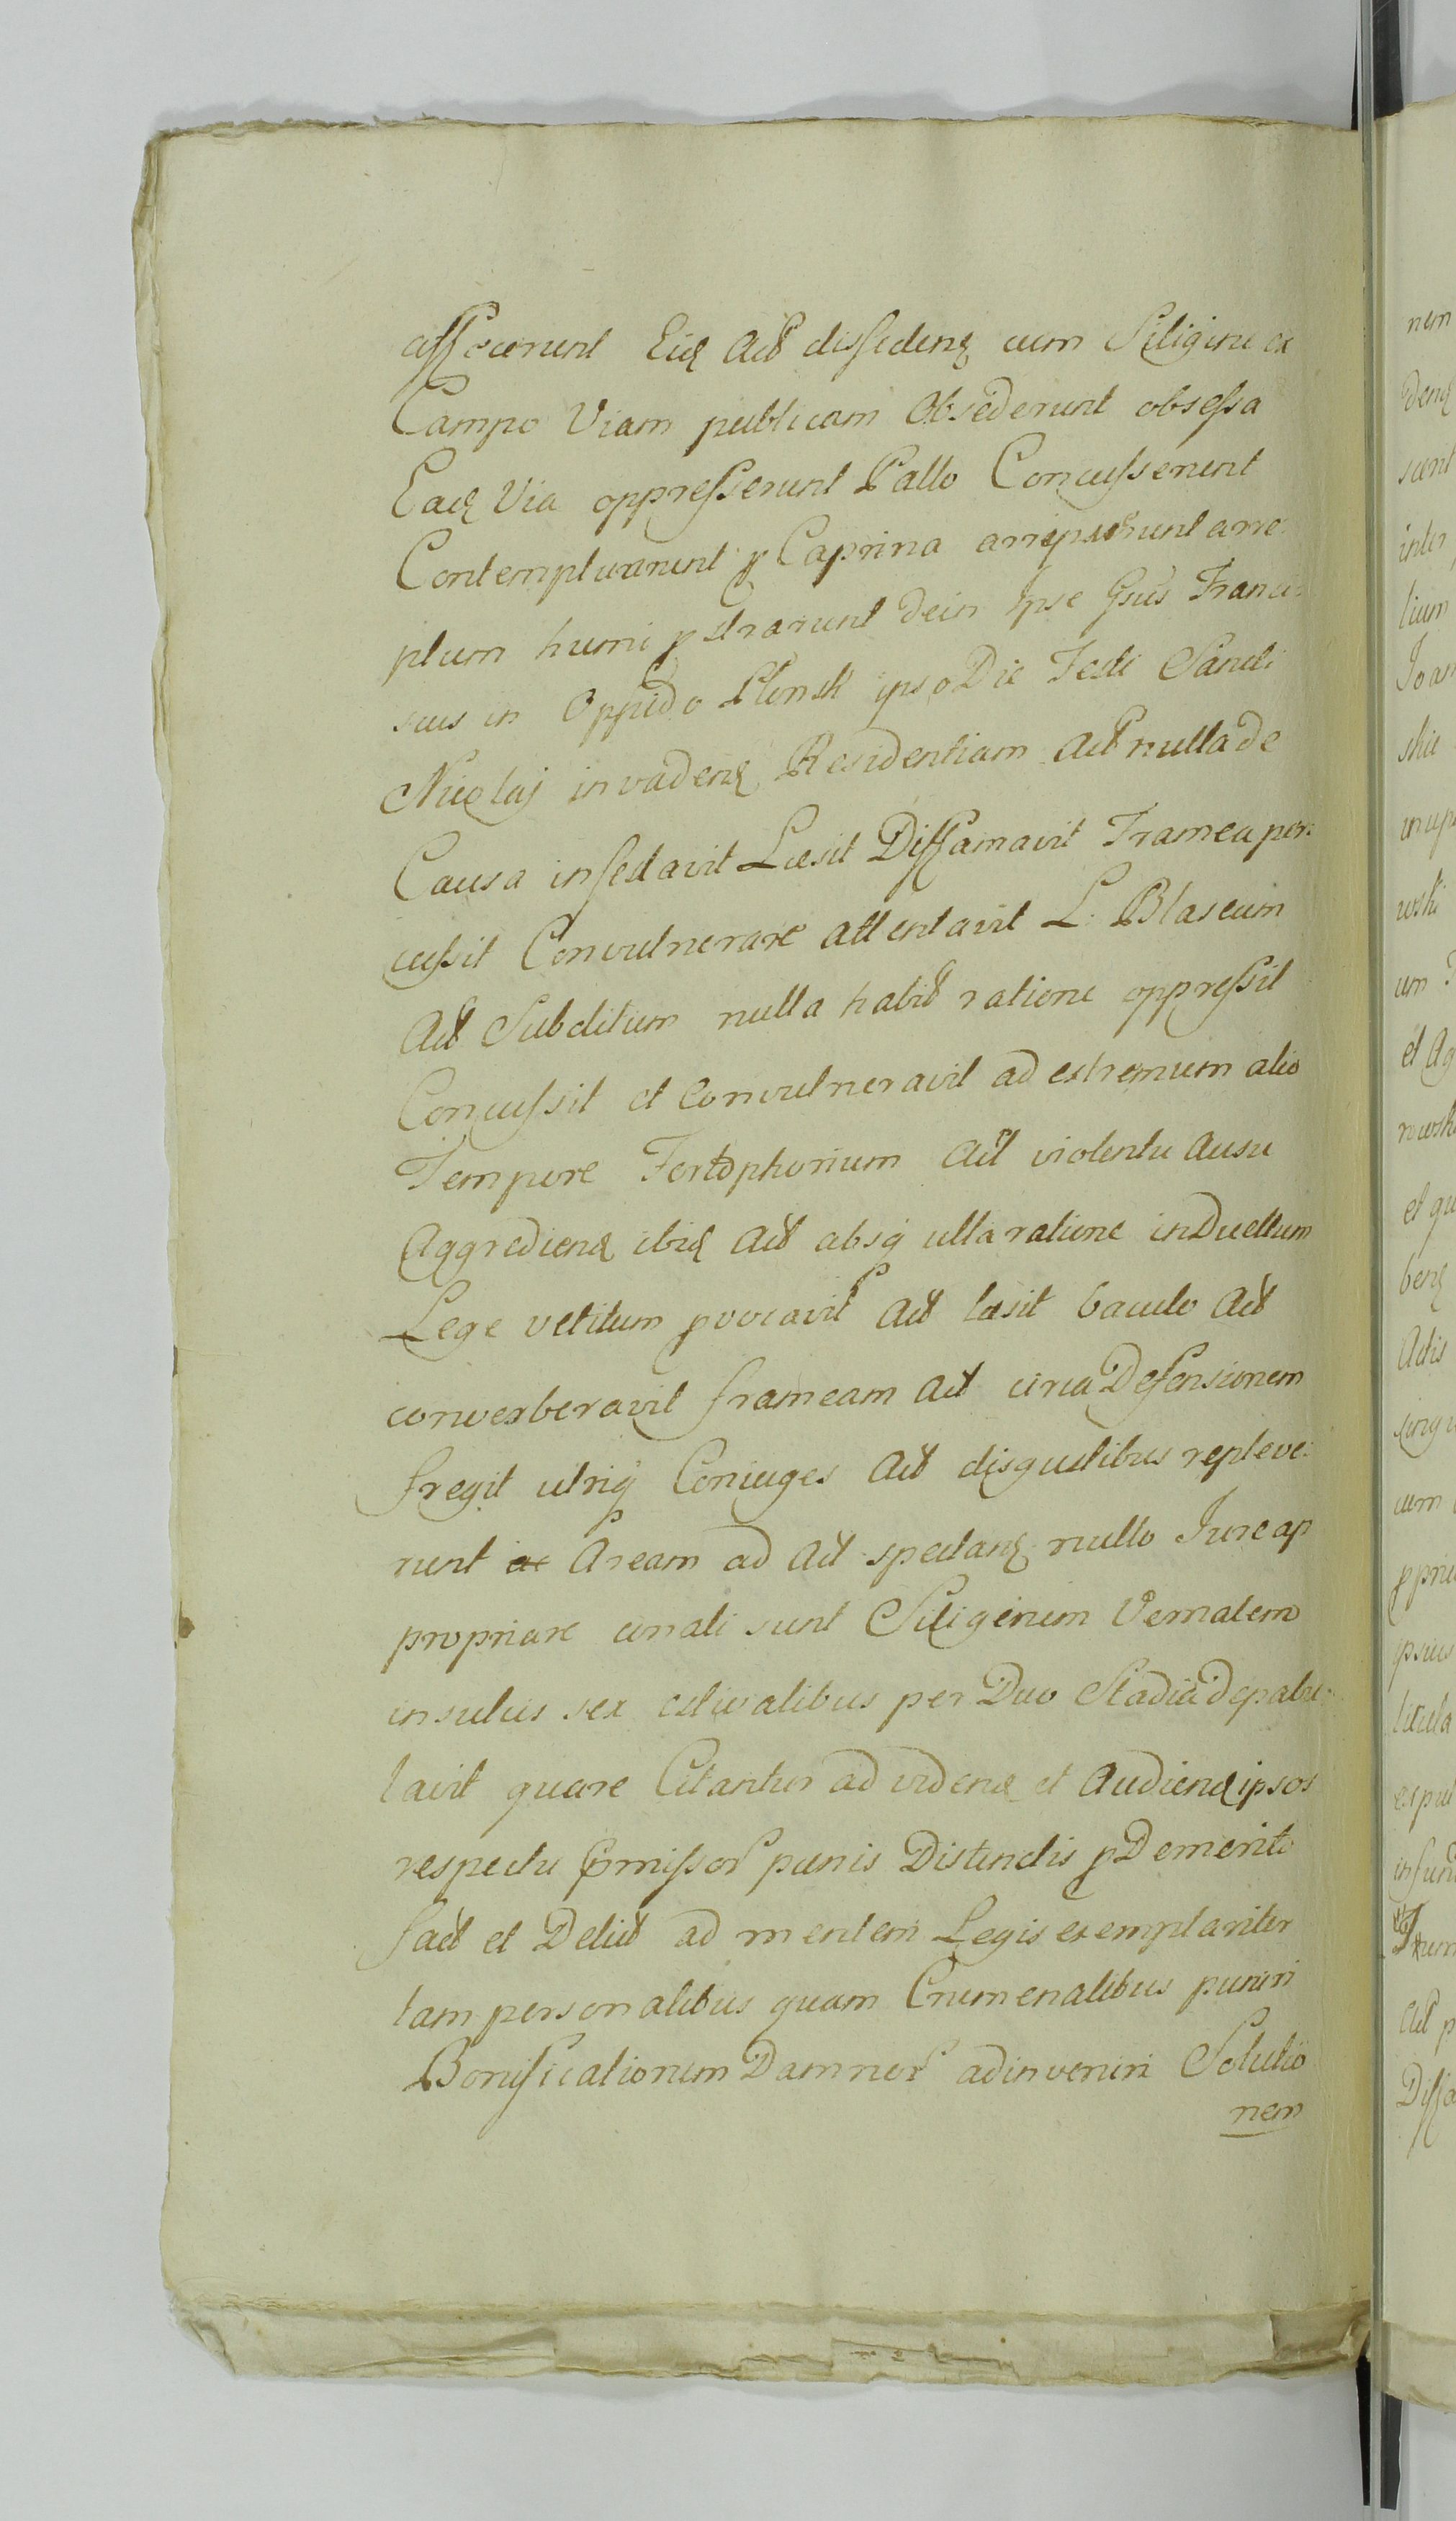 affecerunt Eid Act dissidend cum Siligine ex
Campo Viam publicam Obsederunt obsessa
Ead Via oppresserunt Pallo Concusserunt
Contemptuarunt p Caprina arripuerunt arre
ptum humi pstrarunt dein Ipse Gsus Franci:
scus in Oppido Plonsk ipso Die Festi Sancti
Nicolaj invadend Residentiam Act nulla de
Causa infestavit Læsit Diffamavit Framea per:
cussit Convulnerare attentavit L: Blaseum
Act Subditum nulla habit ratione oppressit
Concussit et Convulneravit ad extremum alio
Tempore Fortophorium Act violento Ausu
Aggrediend ibid Act absq ulla ratione in Duellum
Lege vetitum provocavit Act læsit baculo Act
converberavit frameam Act circa Defensionem
fregit utriq Coniuges Act disgustibus repleve:
runt ac Aream ad Act spectand nullo Jure ap
propriare conati sunt Siliginem Vernalem
in sulcis sex estivalibus per Duo Stadia depabu:
lavit quare Citantur ad vidend et Audiend ipsos
respectu Præmissor pænis Distinctis p Demerito
fact et Delict ad mentem Legis exemplariter
tam personalibus quam Crumenalibus puniri
Bonificationem Damnor adinveniri Solutio
nem
nem
dend
sunt
inter
tium
Joan
skie
wski
um
et Ag
rowsk
et qu
bend
Actis
cum
ppri
ipsius
Act p
Diffa